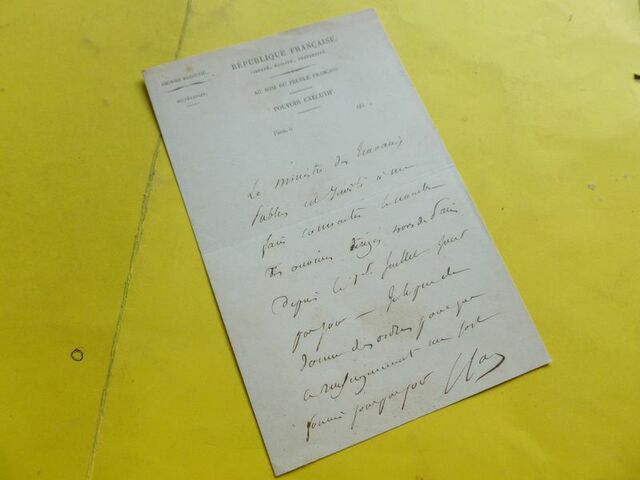 RÉPUBLIQUE FRANÇAISE.
LIBERTÉ, ÉGALITÉ, FRATERNITÉ.
AU NOM DU PEUPLE FRANÇAIS
POUVOIR EXÉCUTIF.
Paris, le 184
Le Ministre des travaux
Publics est invité à me
faire connaître le nombre
des ouvriers dirigés hors de Paris
depuis le 1er Juillet
par jour — Je le prie de
donner des ordres pour que
ce renseignement me soit
fourni jour par jour